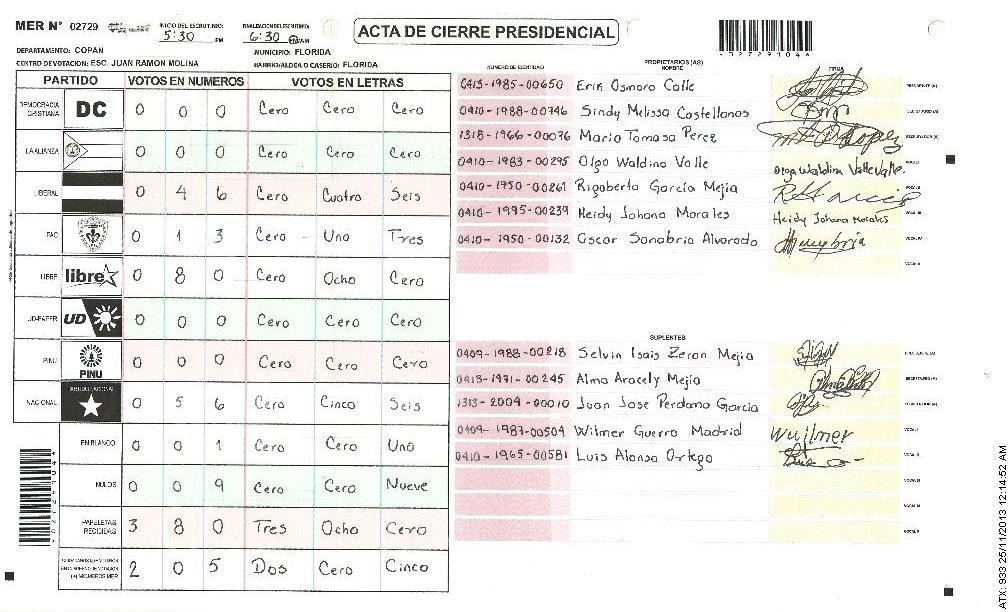 MER N° 02729 INICIO DEL ESCRUTINIO: 5:30 PM FINALIZACION DEL ESCRUTINIO: 6:30 PM/AM
ACTA DE CIERRE PRESIDENCIAL
DEPARTAMENTO: COPAN MUNICIPIO: FLORIDA
CENTRO DE VOTACION: ESC. JUAN RAMON MOLINA BARRIO/ALDEA O CASERIO: FLORIDA
PARTIDO VOTOS EN NUMEROS VOTOS EN LETRAS
DEMOCRACIA CRISTIANA DC 0 0 0 Cero Cero Cero
LA ALIANZA 0 0 0 Cero Cero Cero
LIBERAL 0 4 6 Cero Cuatro Seis
PAC 0 1 3 Cero - Uno Tres
LIBRE libre 0 8 0 Cero Ocho Cero
UD-FAPER UD 0 0 0 Cero Cero Cero
PINU PINU 0 0 0 Cero Cero Cero
NACIONAL 0 5 6 Cero Cinco Seis
EN BLANCO 0 0 1 Cero Cero Uno
NULOS 0 0 9 Cero Cero Nueve
PAPELETAS RECIBIDAS 3 8 0 Tres Ocho Cero
2 0 5 Dos Cero Cinco
NUMERO DE IDENTIDAD PROPIETARIOS (AS) NOMBRE FIRMA
0413-1985-00650 Erik Osmoro Calle PRESIDENTE (A)
0410-1988-00746 Sindy Melissa Castellonos SECRETARIO (A)
1318-1966-00076 Maria Tomasa Perez ESCRUTADOR (A)
0410-1983-00295 Olga Waldina Valle Olga Waldina Valle Valle. VOCAL I
0410-1950-00261 Rigoberto Garcia Mejia VOCAL II
0410-1995-00239 Heidy Johana Morales Heidy Johana Morales VOCAL III
0410-1950-00132 Oscar Sanabria Alvarado VOCAL IV
VOCAL V
SUPLENTES
0409-1988-00218 Selvin Isais Zeron Mejia PRESIDENTE (A)
0413-1971-00245 Alma Aracely Mejia SECRETARIO (A)
1313-2004-00010 Juan Jose Perdomo Garcia ESCRUTADOR (A)
0409-1987-00504 Wilmer Guerro Madrid Wuilmer VOCAL I
0410-1965-00581 Luis Alonso Ortega VOCAL II
VOCAL III
VOCAL IV
VOCAL V
027291046
ATX: 933 25/11/2013 12:14:52 AM